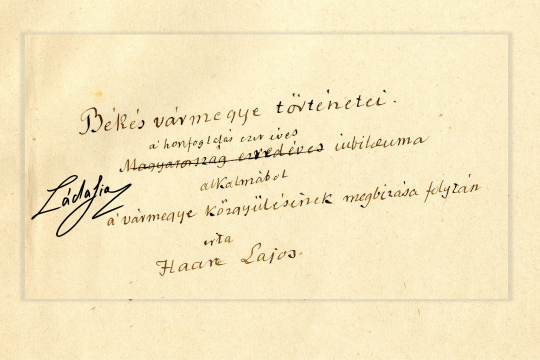 Békés vármegye történetei.
a honfoglalás ezer éves
Magyarország ezredéves iubilaeuma
alkalmából
Ládafia
a vármegye közgyülésének megbizása folytán
irta
Haan Lajos.